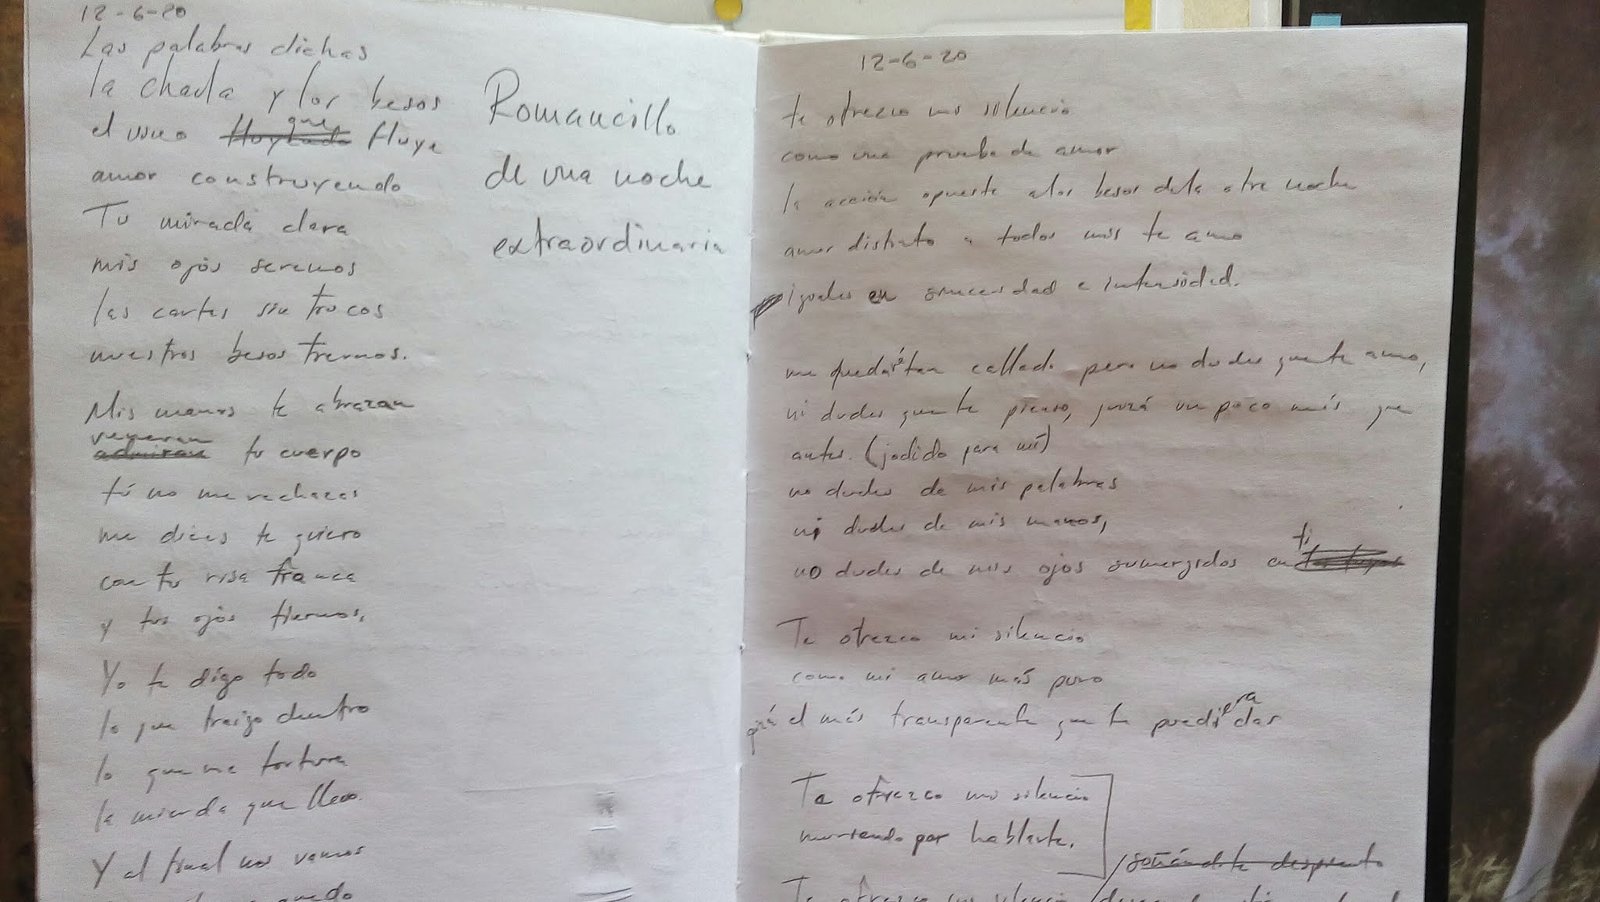 12-6-20
Las palabras dichas
la charla y los besos
el vino que fluye
amor construyendo
Tu mirada clara
mis ojos serenos
las cartas sin trucos
nuestros besos tiernos.
Mis manos te abrazan
veneran tu cuerpo
tú no me rechazas
me dices te quiero
con tu risa franca
y tus ojos tiernos,
Yo te digo todo
lo que traigo dentro
lo que me tortura
la mierda que llevo.
Y al final nos vamos
Romancillo
de una noche
extraordinaria
12-6-20
te ofrezco mi silencio
como una prueba de amor
la acción opuesta a los besos de la otra noche
amor distinto a todos mis te amo
iguales en sinceridad e intensidad.
me quedaré tan callado pero no dudes que te amo,
ni dudes que te pienso, quizá un poco más que
antes. (jodido para mí)
no dudes de mis palabras
ni dudes de mis manos,
no dudes de mis ojos sumergidos en ti
Te ofrezco mi silencio
como mi amor más puro
quizá el más transparente que te pudiera dar
Te ofrezco mi silencio
muriendo por hablarte.
soñándote despierto
Te ofrezco mi silencio